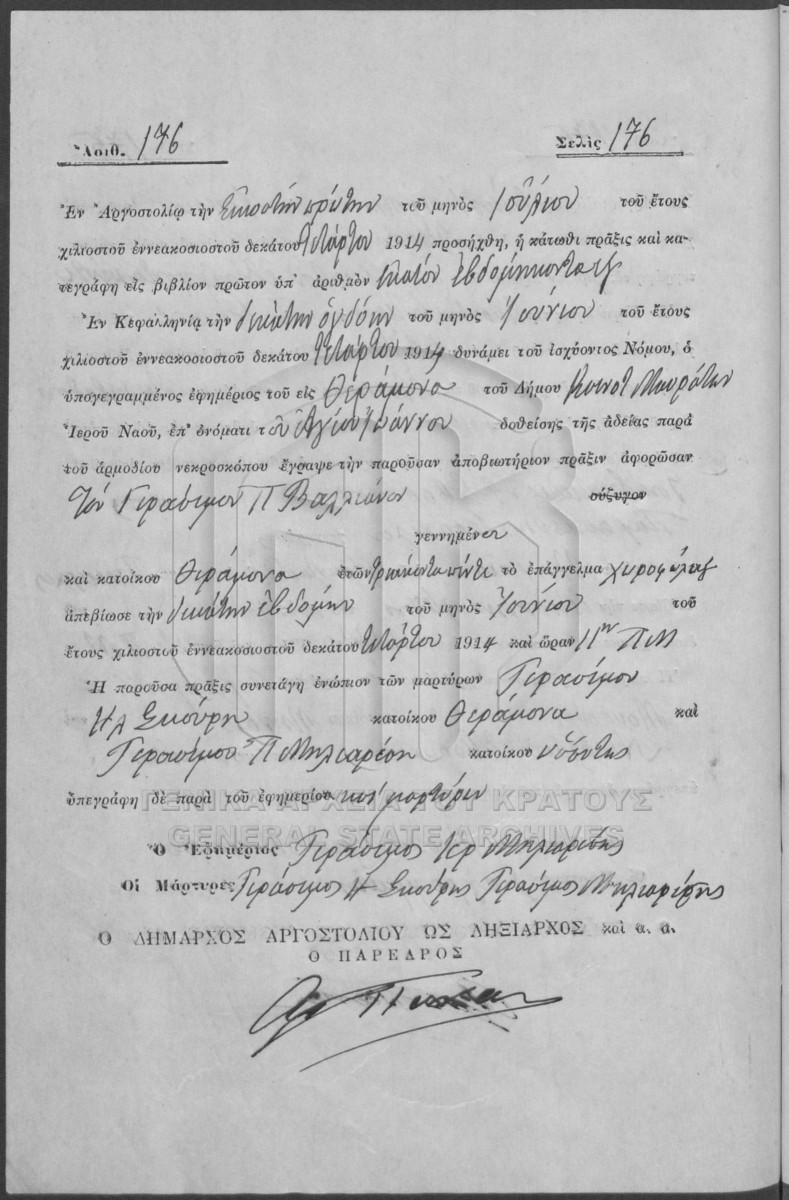 Ἀριθ. 176 Σελὶς 176
Ἐν Ἀργοστολίῳ τὴν Εἰκοστήν πρώτην τοῦ μηνὸς Ἰουλίου τοῦ ἔτους
χιλιοστοῦ ἐννεακοσιοστοῦ δεκάτου τετάρτου 1914 προσήχθη, ἡ κάτωθι πρᾶξις καὶ κα-
τεγράφη εἰς βιβλίον πρῶτον ὑπ' ἀριθμὸν ἑκατόν ἑβδομήκοντα ἕξ
Ἐν Κεφαλληνίᾳ τὴν δεκάτην ὀγδόην τοῦ μηνὸς Ἰουνίου τοῦ ἔτους
χιλιοστοῦ ἐννεακοσιοστοῦ δεκάτου τετάρτου 1914 δυνάμει τοῦ ἰσχύοντος Νόμου, ὁ
ὑπογεγραμμένος ἐφημέριος τοῦ εἰς Θεράμονα τοῦ Δήμου Κοινοτ
Ἱεροῦ Ναοῦ, ἐπ' ὀνόματι τοῦ Ἁγίου Ἰωάννου δοθείσης τῆς ἀδείας παρὰ
τοῦ ἁρμοδίου νεκροσκόπου ἔγραψε τὴν παροῦσαν ἀποβιωτήριον πρᾶξιν ἀφορῶσαν
Τόν Γεράσιμον Π Βαλλιάνον σύζυγον
γεννημένον
καὶ κατοίκου Θεράμονα ἐτῶν τριάκοντα πέντε τὸ ἐπάγγελμα χωροφύλαξ
ἀπεβίωσε τὴν δεκάτην ἑβδόμην τοῦ μηνὸς Ἰουνίου τοῦ
ἔτους χιλιοστοῦ ἐννεακοσιοστοῦ δεκάτου τετάρτου 1914 καὶ ὥραν 11ην Π Μ
Ἡ παροῦσα πρᾶξις συνετάγη ἐνώπιον τῶν μαρτύρων Γερασίμου
Σκούρη κατοίκου Θεράμονα καὶ
Γερασίμου Π Μηλιαρέση κατοίκου
ὑπεγράφη δὲ παρὰ τοῦ ἐφημερίου καί μαρτύρων
ΓΕΝΙΚΑ ΑΡΧΕΙΑ ΤΟΥ ΚΡΑΤΟΥΣ
GENERAL STATE ARCHIVES
Ὁ Ἐφημέριος Γεράσιμος Ιερ Μηλιαρέσης
Οἱ Μάρτυρες Γεράσιμος Σκούρης Γεράσιμος Μηλιαρέσης
Ο ΔΗΜΑΡΧΟΣ ΑΡΓΟΣΤΟΛΙΟΥ ΩΣ ΛΗΞΙΑΡΧΟΣ καὶ α. α.
Ο ΠΑΡΕΔΡΟΣ